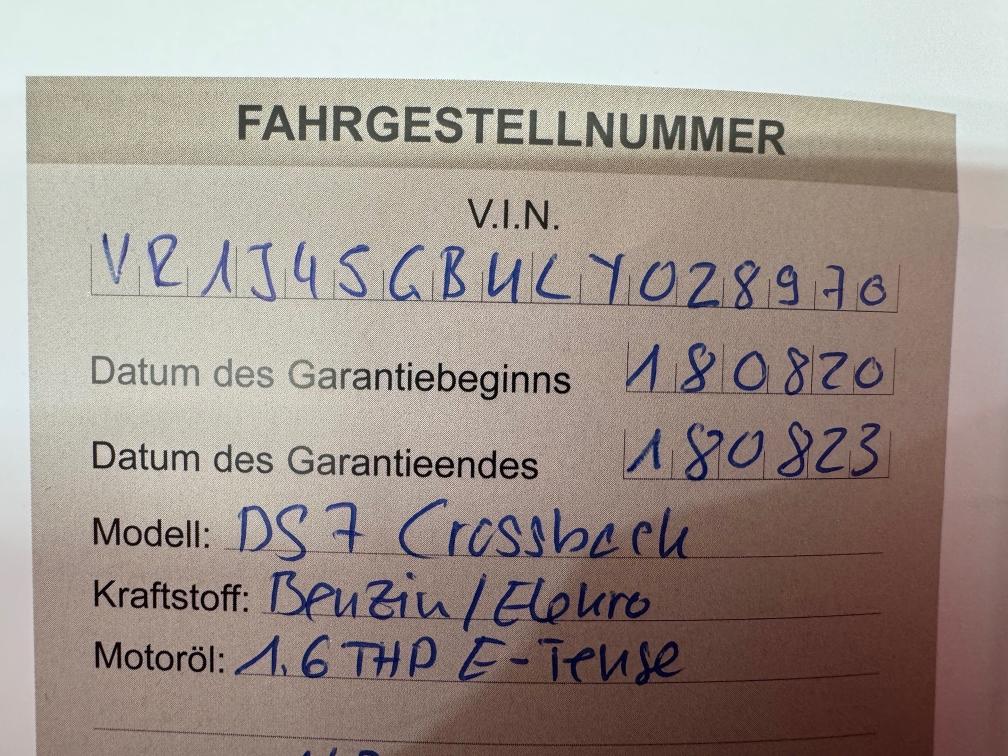 FAHRGESTELLNUMMER
V.I.N.
VR1J45GBULY028970
Datum des Garantiebeginns 180820
Datum des Garantieendes 180823
Modell: DS7 Crossback
Kraftstoff: Benzin/Elekro
Motoröl: 1.6 THP E-Tense